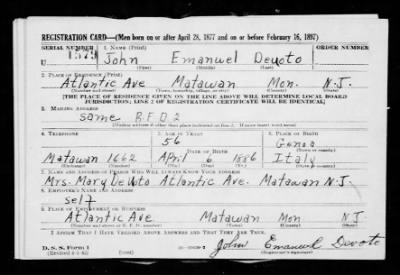 REGISTRATION CARD—(Men born on or after April 28, 1877 and on or before February 16, 1897)
SERIAL NUMBER 1. NAME (Print) ORDER NUMBER
U 1579 John Emanuel Devoto
(First) (Middle) (Last)
2. PLACE OF RESIDENCE (Print)
Atlantic Ave Matawan Mon. N.J.
(Number and street) (Town, township, village, or city) (County) (State)
[THE PLACE OF RESIDENCE GIVEN ON THE LINE ABOVE WILL DETERMINE LOCAL BOARD
JURISDICTION; LINE 2 OF REGISTRATION CERTIFICATE WILL BE IDENTICAL]
3. MAILING ADDRESS
Same R.F.D 2
[Mailing address if other than place indicated on line 2. If same insert word same]
4. TELEPHONE 5. AGE IN YEARS 6. PLACE OF BIRTH
56 Genoa
DATE OF BIRTH
Matawan 1662 April 6 1886 Italy
(Exchange) (Number) (Mo.) (Day) (Yr.) (State or country)
7. NAME AND ADDRESS OF PERSON WHO WILL ALWAYS KNOW YOUR ADDRESS
Mrs. Mary DeVoto Atlantic Ave. Matawan N.J.
8. EMPLOYER'S NAME AND ADDRESS
Self
9. PLACE OF EMPLOYMENT OR BUSINESS
Atlantic Ave Matawan Mon N.J.
(Number and street or R. F. D. number) (Town) (County) (State)
I AFFIRM THAT I HAVE VERIFIED ABOVE ANSWERS AND THAT THEY ARE TRUE.
D. S. S. Form 1 John Emanuel Devoto
(over) (Registrant's signature)